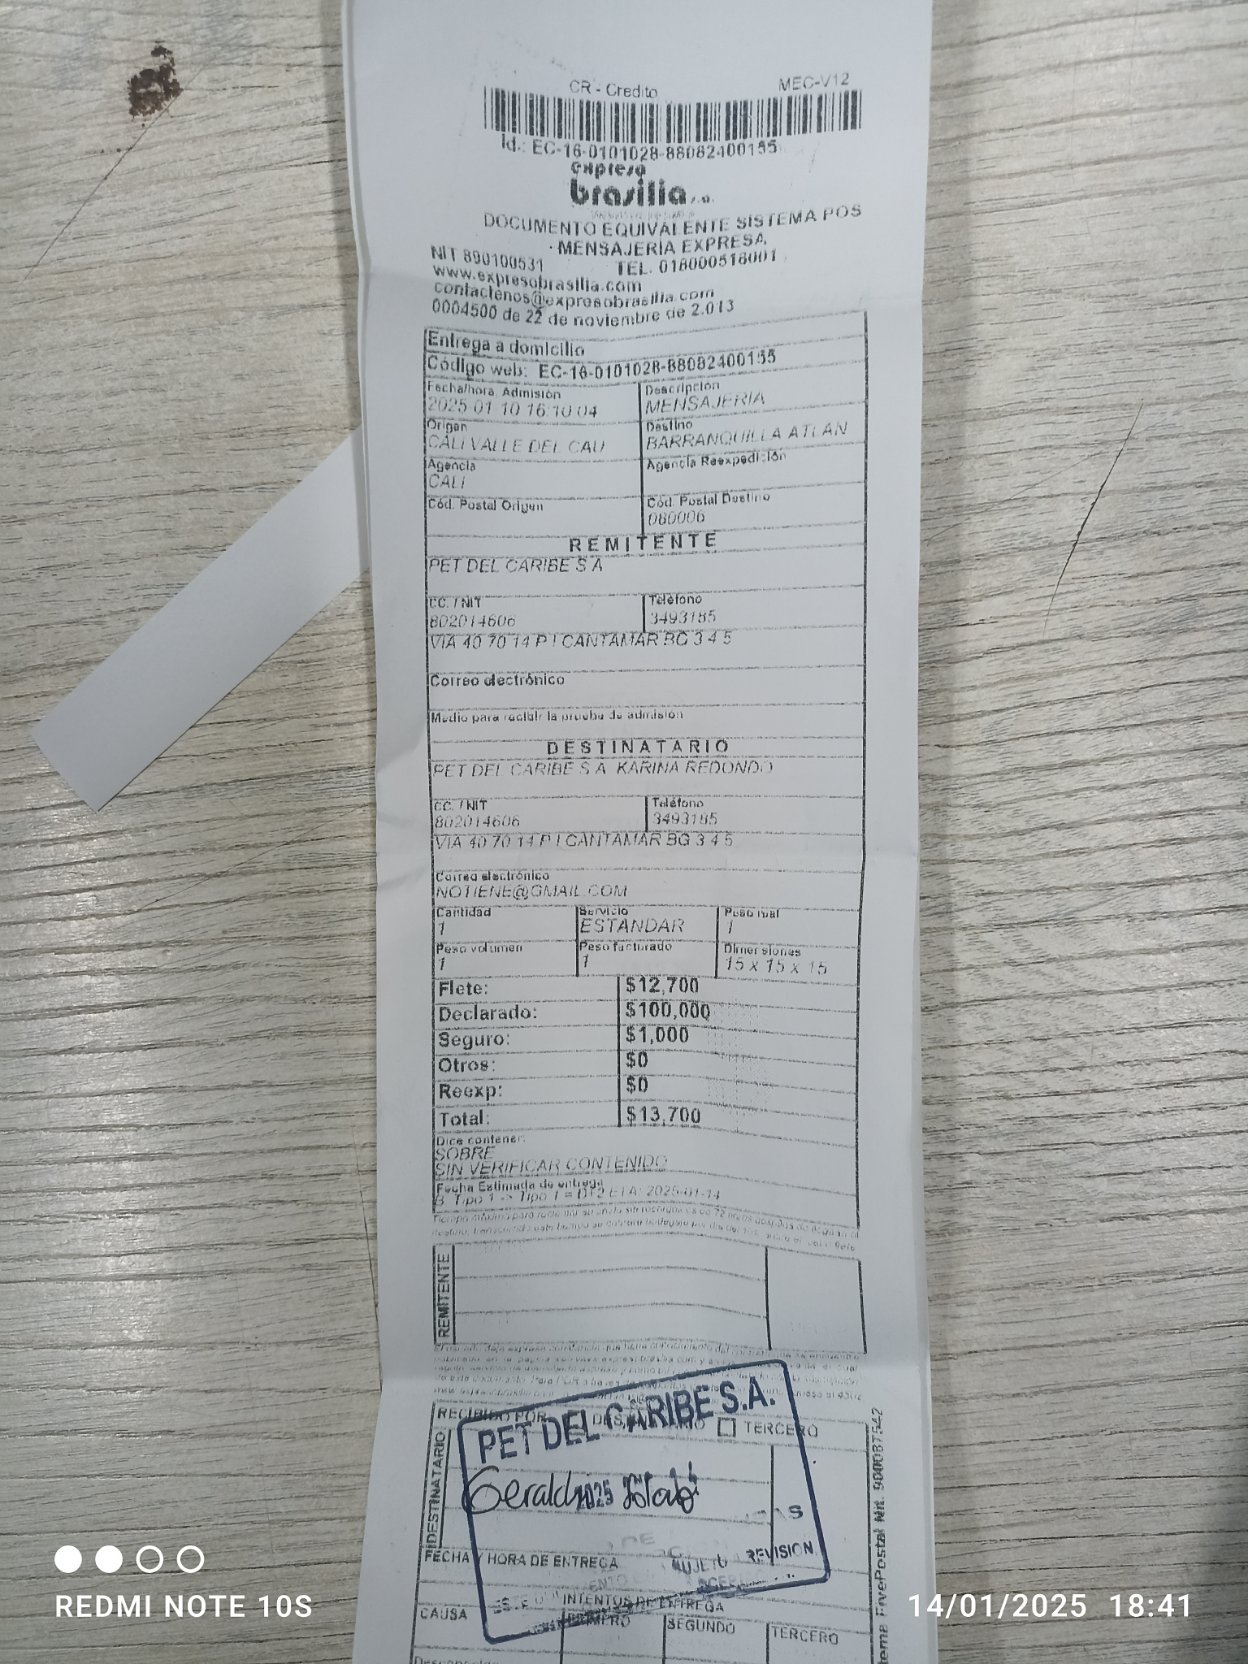 CR - Credito MEC-V12
Id.: EC-16-0101028-88082400155
expreso
brasilia s.a.
DOCUMENTO EQUIVALENTE SISTEMA POS
- MENSAJERIA EXPRESA
NIT 890100531 TEL. 018000518001
www.expresobrasilia.com
contactenos@expresobrasilia.com
0004500 de 22 de noviembre de 2.013
Entrega a domicilio
Código web: EC-16-0101028-88082400155
Fecha/hora Admisión Descripción
2025-01-10 16:10:04 MENSAJERIA
Origen Destino
CALI VALLE DEL CAU BARRANQUILLA ATLAN
Agencia Agencia Reexpedición
CALI
Cód. Postal Origen Cód. Postal Destino
080006
REMITENTE
PET DEL CARIBE S A
CC. / NIT Teléfono
802014606 3493185
VIA 40 70 14 P I CANTAMAR BG 3 4 5
Correo electrónico
Medio para recibir la prueba de admisión
DESTINATARIO
PET DEL CARIBE S A KARINA REDONDO
CC. / NIT Teléfono
802014606 3493185
VIA 40 70 14 P I CANTAMAR BG 3 4 5
Correo electrónico
NOTIENE@GMAIL.COM
Cantidad Servicio Peso real
1 ESTANDAR 1
Peso volumen Peso facturado Dimensiones
1 1 15 x 15 x 15
Flete: $12,700
Declarado: $100,000
Seguro: $1,000
Otros: $0
Reexp: $0
Total: $13,700
Dice contener:
SOBRE
SIN VERIFICAR CONTENIDO
Fecha Estimada de entrega
B. Tipo 1 -> Tipo 1 = DT2 ETA: 2025-01-14
REMITENTE
RECIBIDO POR TERCERO
PET DEL CARIBE S.A.
DESTINATARIO
2025
FECHA Y HORA DE ENTREGA
SUJETO REVISION
INTENTOS DE ENTREGA
CAUSA PRIMERO SEGUNDO TERCERO
REDMI NOTE 10S
14/01/2025 18:41